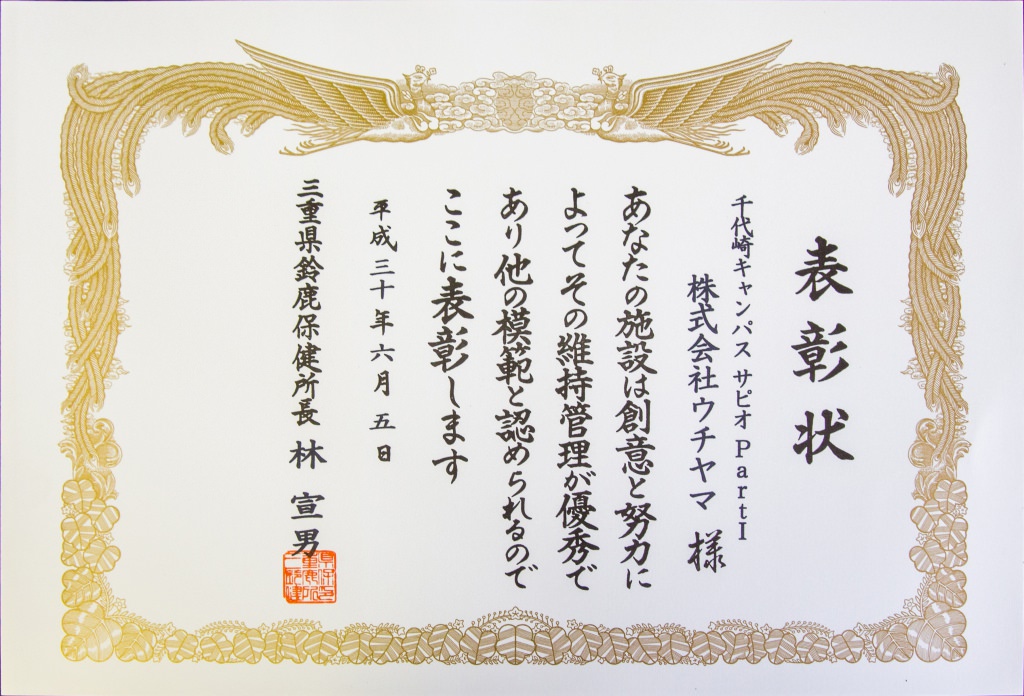 表彰状
千代崎キャンパス サピオ PartⅠ
株式会社ウチヤマ 様
あなたの施設は創意と努力に
よってその維持管理が優秀で
あり他の模範と認められるので
ここに表彰します
平成三十年六月五日
三重県鈴鹿保健所長 林 宣男